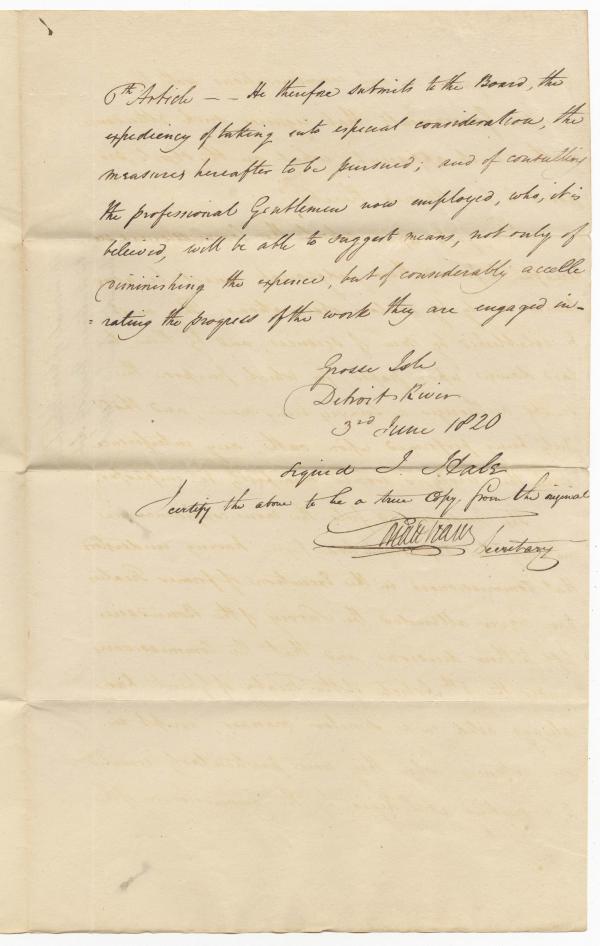 6th Article -- He therefore submits to the Board, the
expediency of taking into especial consideration, the
measures hereafter to be pursued; and of consulting
the professional Gentlemen now employed, who, it is
beleived, will be able to suggest means, not only of
diminishing the expence, but of considerably accelle
=rating the progress of the work they are engaged in-
Grosse Isle
Detroit River
3rd June 1820
signed J. Hale
I certify the above to be a true Copy from the original
Secretary